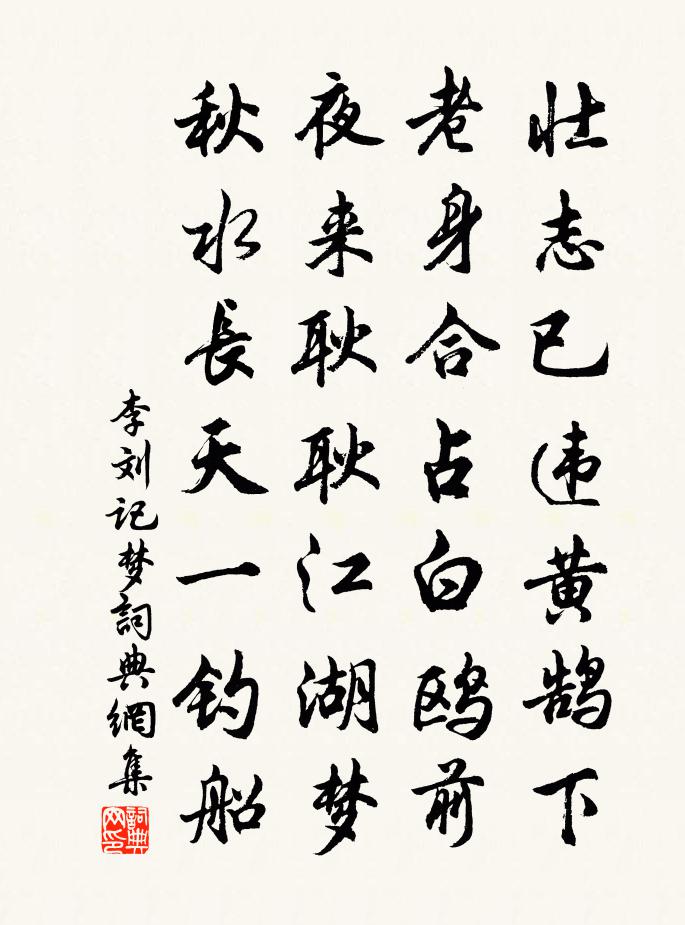 壮志已违黄鹄下
老身合占白鸥前
夜来耿耿江湖梦
秋水長天一钓船
李刘记梦詞典網集
詞典网印